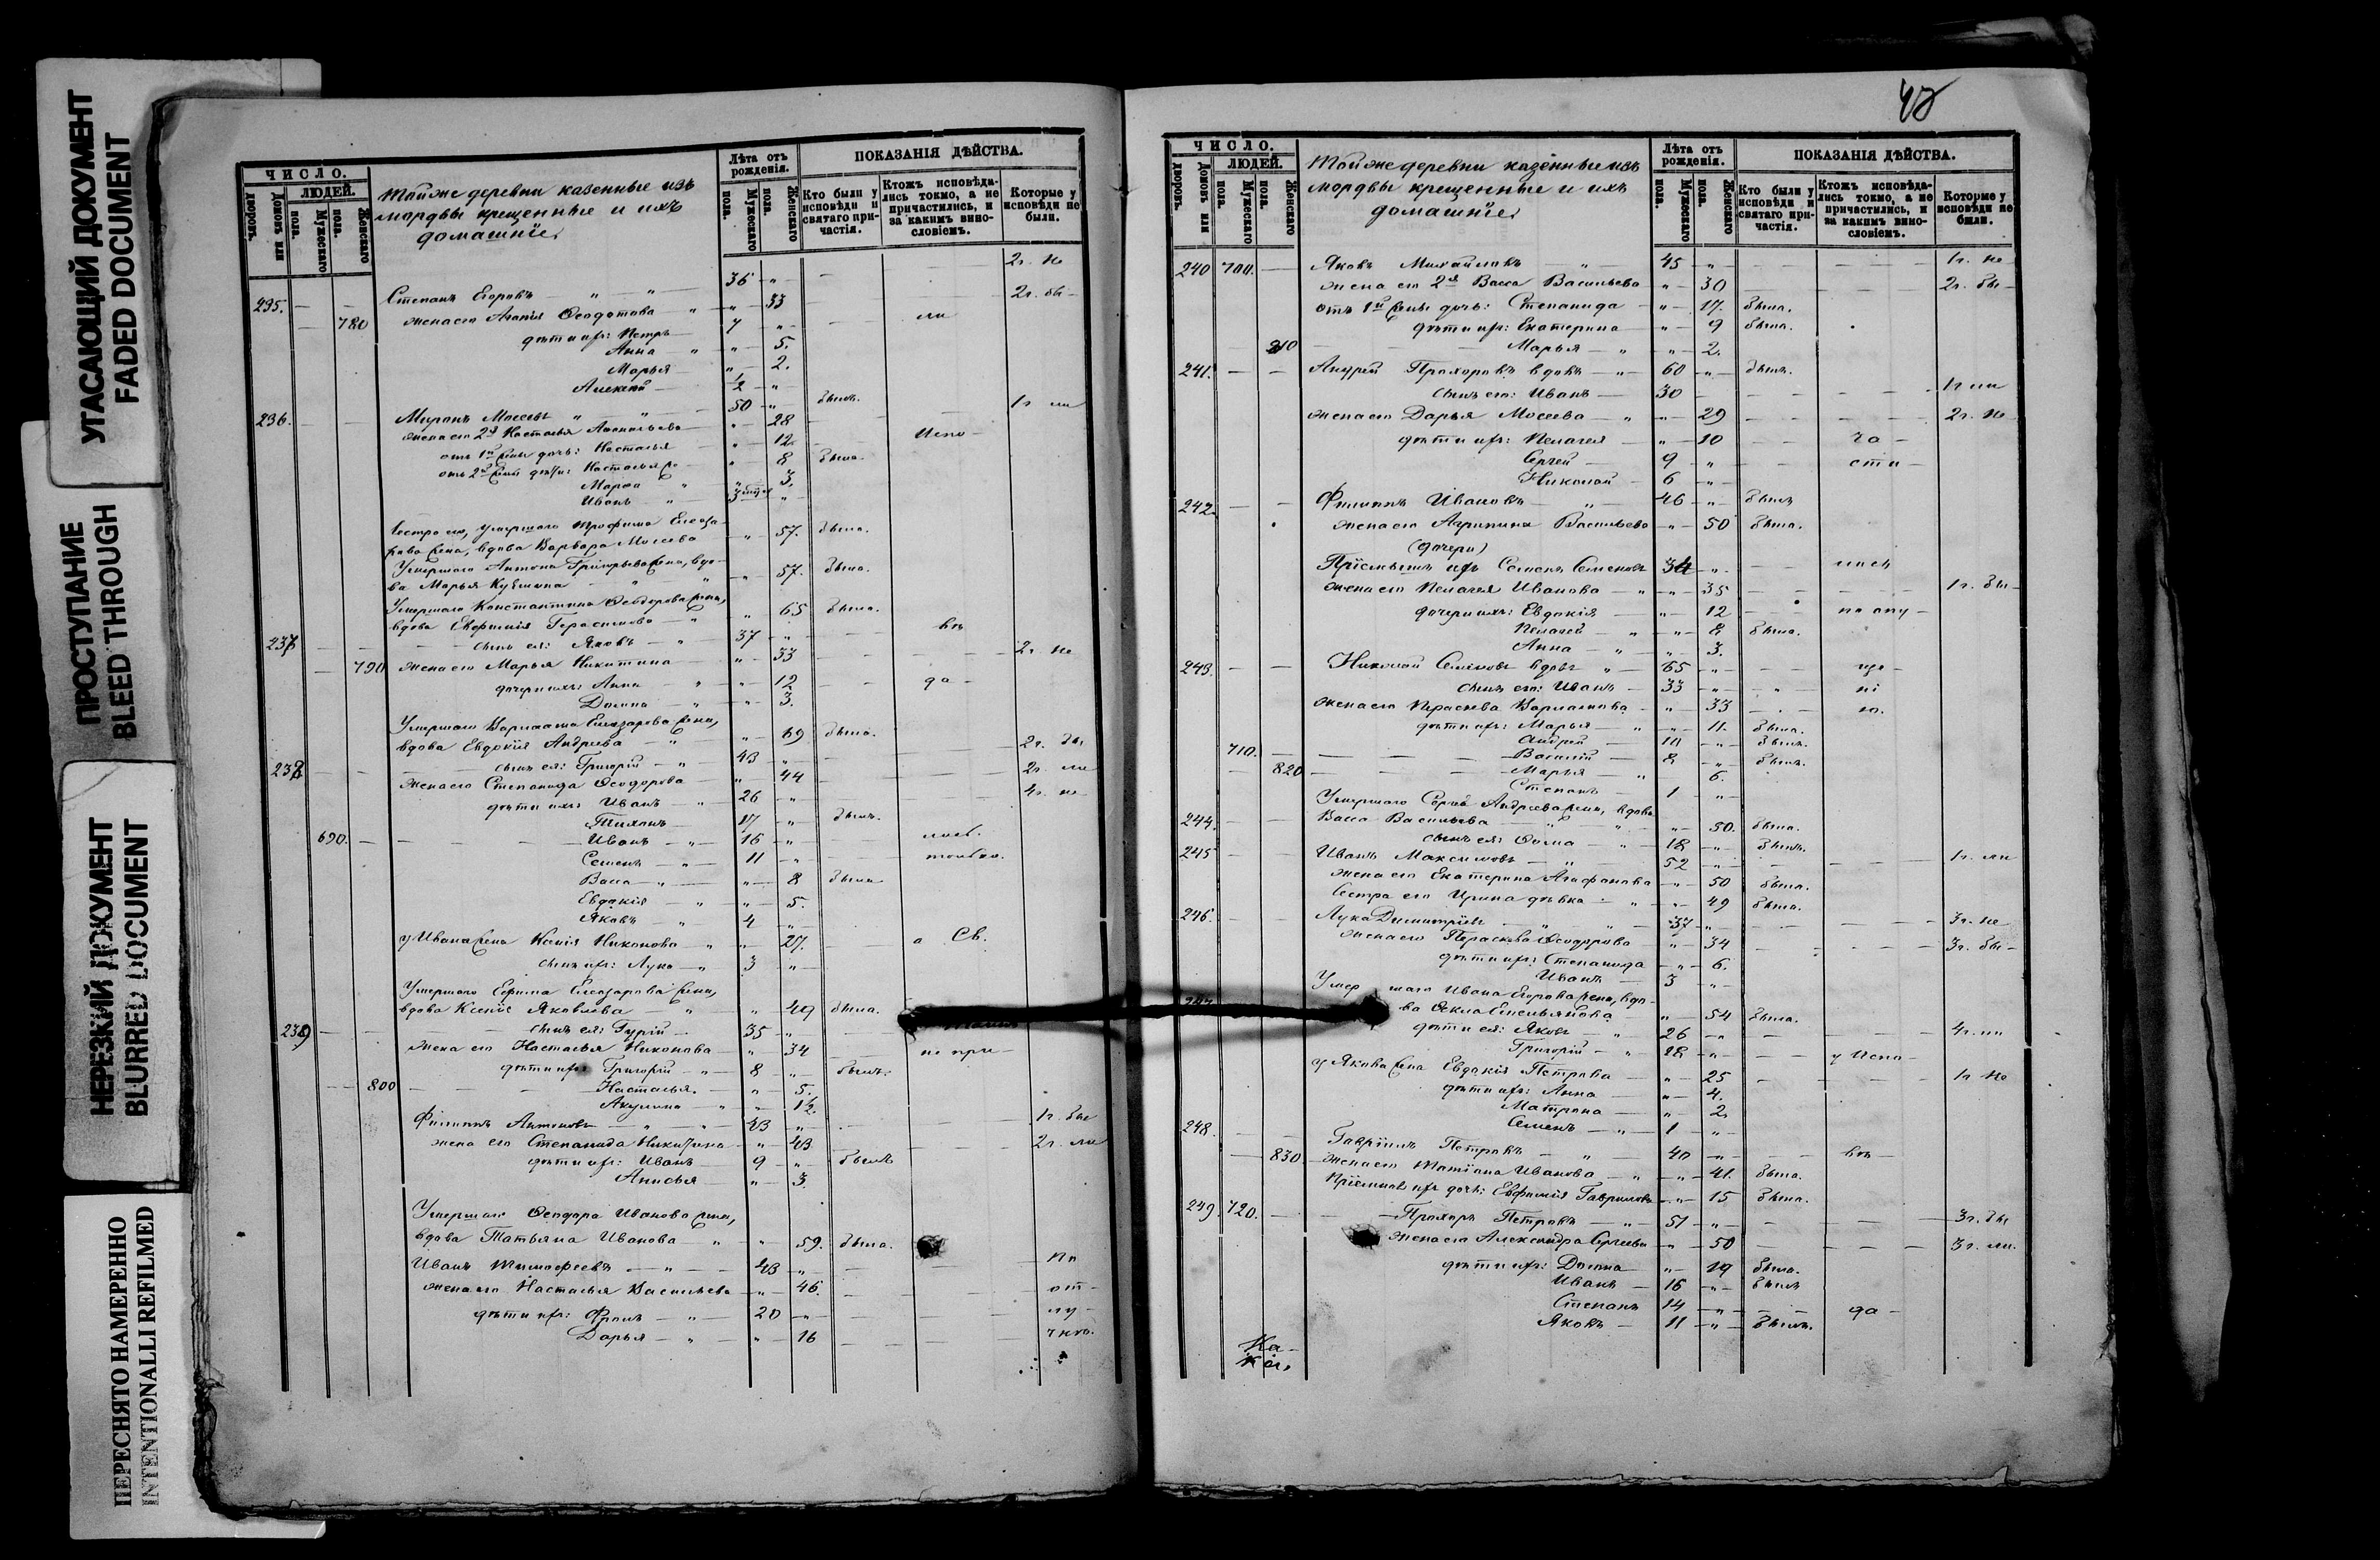 УГАСАЮЩИЙ ДОКУМЕНТ
FADED DOCUMENT
ПРОСТУПАНИЕ
BLEED THROUGH
НЕРЕЗКИЙ ДОКУМЕНТ
BLURRED DOCUMENT
ПЕРЕСНЯТО НАМЕРЕННО
INTENTIONALLI REFILMED
ЧИСЛО.
ЛЮДЕЙ.
Домовъ или дворовъ.
Мужескаго пола.
Женскаго пола.
Тойже деревни казенные изъ
мордвы крещенные и ихъ
домашніе
Лѣта отъ рожденія.
Мужескаго пола.
Женскаго пола.
ПОКАЗАНІЯ ДѢЙСТВА.
Кто были у исповѣди и святаго причастія.
Ктожъ исповѣдались токмо, а не причастились, и за какимъ винословіемъ.
Которые у исповѣди не были.
235. Степанъ Егоровъ 36 2г. не
жена его Агапія Ѳеодотова 33 2г. бы-
780 дѣти ихъ: Петръ 7 ли
Анна 5.
Марья 2.
Алексѣй 1/2
236. Миронъ Моѵсеевъ 50 былъ.
жена его 2я Настасья 28 1г ли
отъ 1й жены дочь: Настасья 12 Испо-
отъ 2й жены дѣти: Настасья 8 была.
Марѳа 3.
Иванъ
умершаго Трофима Елеаза-
рова жена, вдова Варвара Моѵсеева 57. была.
Умершаго Антона Григорьева жена, вдо-
ва Марья Кузьмина 57. была.
Умершаго Константина Ѳеодорова жена,
вдова Евфимія Герасимова 65 была.
237 сынъ ея: Яковъ 37 вѣ
790 жена его Марья Никитина 33 2г. не
дочери ихъ: Анна 12 да-
Домна 3.
Умершаго Варлаама Елеазарова жена,
вдова Евдокія Андреева 69 была.
238 сынъ ея: Григорій 43 2г. бы
жена его Степанида Ѳеодорова 44 2г. ли
дѣти ихъ: Иванъ 26 4г. не
Тихонъ 17 былъ.
690. Иванъ 16
Семенъ 11 только.
Васса 8 была
Евдокія 5.
Яковъ 4
у Ивана жена Ксенія Никонова 27. а Св.
сынъ ихъ: Лука 3
Умершаго Ефима Елеазарова жена,
вдова Ксенія Яковлева 49 была.
239 сынъ ея: Гурій 35
жена его Настасья Никонова 34 не при-
дѣти ихъ: Григорій 8 былъ.
800 Настасья. 5.
Акулина 1 1/2
Филиппъ Антоновъ 43 1г. бы
жена его Степанида Никитина 43 2г. ли
дѣти ихъ: Иванъ 9 былъ
Анисья 3.
Умершаго Ѳеодора Иванова жена,
вдова Татьяна Иванова 59. была.
Иванъ Тимоѳеевъ 43 По
жена его Настасья Васильева 46. от-
дѣти ихъ: Фролъ 20 лу-
Дарья 16 чкѣ.
ЧИСЛО.
ЛЮДЕЙ.
Домовъ или дворовъ.
Мужескаго пола.
Женскаго пола.
Тойже деревни казенные изъ
мордвы крещенные и ихъ
домашніе
Лѣта отъ рожденія.
Мужескаго пола.
Женскаго пола.
ПОКАЗАНІЯ ДѢЙСТВА.
Кто были у исповѣди и святаго причастія.
Ктожъ исповѣдались токмо, а не причастились, и за какимъ винословіемъ.
Которые у исповѣди не были.
240 700. Яковъ Михайловъ 45 1г. не
жена его 2я Васса Васильева 30 2г. бы-
отъ 1й жены дочь: Степанида 17. была.
дѣти ихъ: Екатерина 9 была.
810 Марья 2.
241. Андрей Прохоровъ вдовъ 60 былъ.
сынъ его: Иванъ 30 1г ли
жена его Дарья Моѵсеева 29 2г. не
дѣти ихъ: Пелагея 10 ча-
Сергей 9 сти-
Николай 6
242. Филиппъ Ивановъ 46 былъ
жена его Агрипина Васильева 50 была.
(дочери)
Пріемышъ ихъ Семенъ Семеновъ 34
жена его Пелагея Иванова 35 1г. бы-
дочери ихъ: Евдокія 12
Пелагея 8 была.
Анна 3.
243. Николай Семеновъ вдовъ 65
сынъ его: Иванъ 33
жена его Праскева Варламова 33
дѣти ихъ: Марья 11. была.
Андрей 10 былъ.
710. Василій 8 былъ.
820 Марья 6.
Степанъ 1
Умершаго Сергея Андреева жена, вдова
244. Васса Васильева 50. была.
сынъ ея: Ѳома 18 былъ.
245 Иванъ Максимовъ 52 1г. ли
жена его Екатерина Агафонова 50 была.
Сестра его Ирина дѣвка 49 была.
246. Лука Димитріевъ 37 3г. не
жена его Параскева Ѳеодорова 34 3г. бы-
дѣти ихъ: Степанида 6.
Иванъ 3
Умершаго Ивана Егорова жена, вдо-
247 ва Ѳекла Емельянова 54 была.
дѣти ея: Яковъ 26 4г. ли
Григорій 18 у Испо-
у Якова жена Евдокія Петрова 25 1г не
дѣти ихъ: Анна 4.
Матрона 2
Семенъ 1
248. Гавріилъ Петровъ 40 вѣ-
830. жена его Татіана Иванова 41. была.
Пріемная ихъ дочь: Евфимія Гаврилова 15 была.
249. 720. Прохоръ Петровъ 51 3г. бы
жена его Александра Сергеева 50 3г. ли.
дѣти ихъ: Домна 19 была.
Иванъ 16 былъ
Степанъ 14 да-
Яковъ 11 былъ.